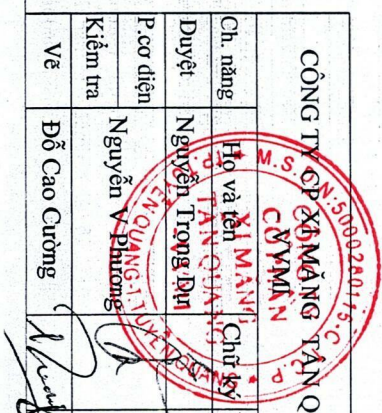 CÔNG TY CP XI MĂNG TÂN Q
VVMI
Ch. năng Họ và tên Chữ ký
Duyệt Nguyễn Trọng Dụ
P.cơ điện
Kiểm tra Nguyễn V Phương
Vẽ Đỗ Cao Cường
M.S.D.N:5000280115-C
CÔNG TY
CỔ PHẦN
XI MĂNG
TÂN QUANG
VVMI
TP. TUYÊN QUANG-T.TUYÊN QUANG